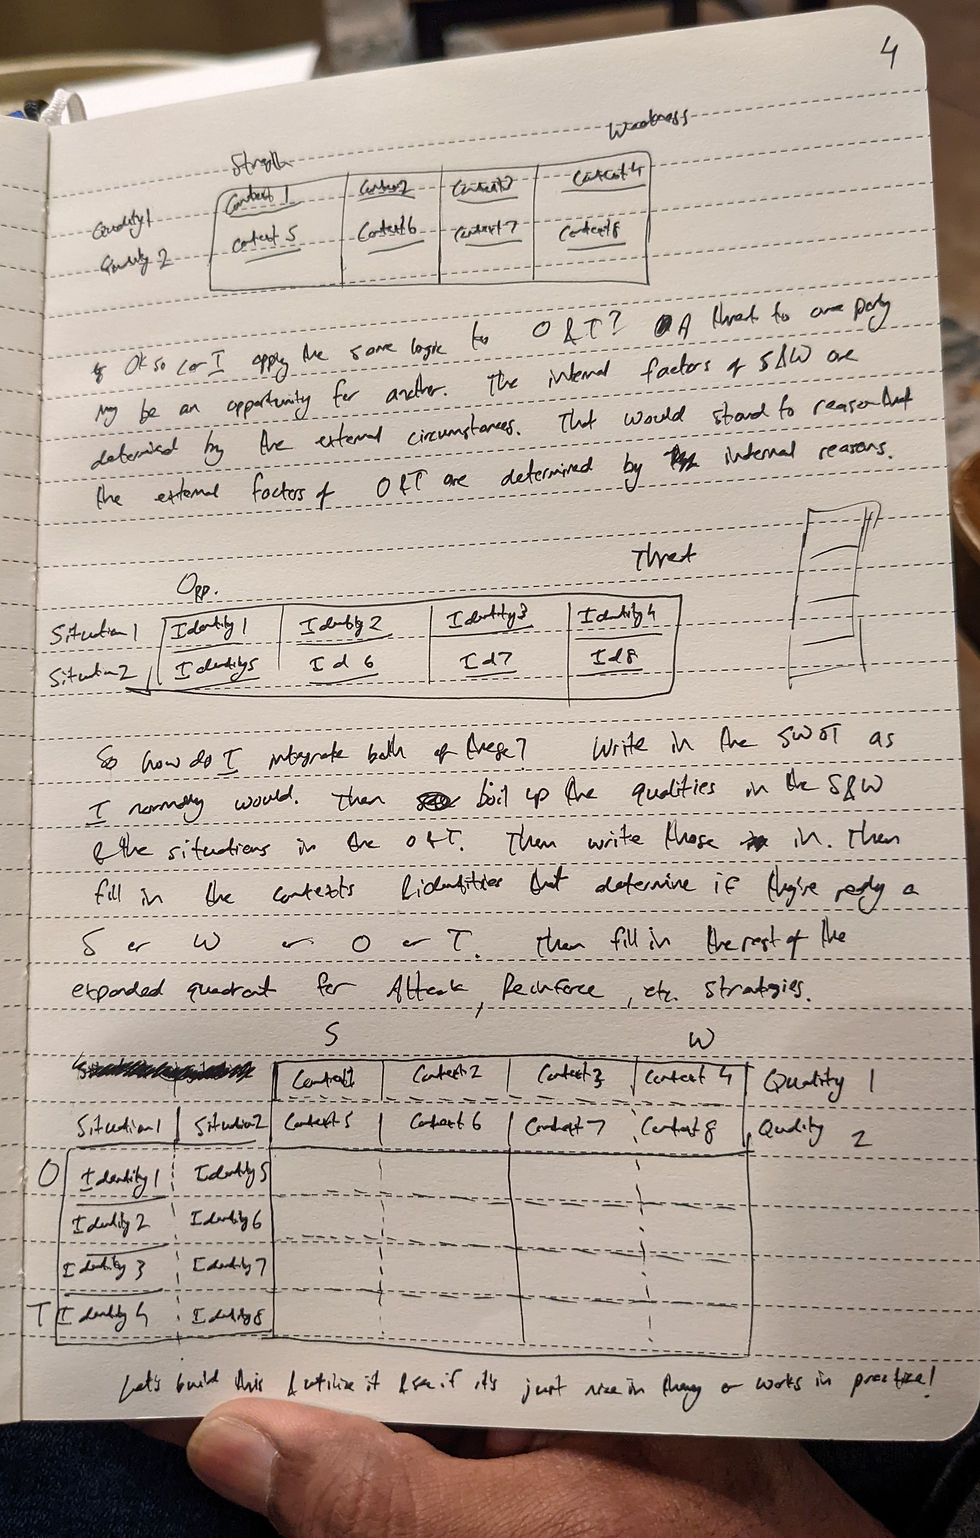 4
Strength Weakness
Quality 1 Context 1 Context 2 Context 3 Context 4
Quality 2 Context 5 Context 6 Context 7 Context 8
Ok so can I apply the same logic to O & T? A threat to one party
may be an opportunity for another. The internal factors of S&W are
determined by the external circumstances. That would stand to reason that
the external factors of O&T are determined by internal reasons.
Opp. Threat
Situation 1 Identity 1 Identity 2 Identity 3 Identity 4
Situation 2 Identity 5 Id 6 Id 7 Id 8
So how do I integrate both of these? Write in the SWOT as
I normally would. Then boil up the qualities in the S&W
& the situations in the O&T. Then write those in. Then
fill in the contexts & identities that determine if they're really a
S or W or O or T. Then fill in the rest of the
expanded quadrant for Attack, Reinforce, etc. strategies.
S W
Context 1 Context 2 Context 3 Context 4 Quality 1
Situation 1 Situation 2 Context 5 Context 6 Context 7 Context 8 Quality 2
O Identity 1 Identity 5
Identity 2 Identity 6
Identity 3 Identity 7
T Identity 4 Identity 8
Let's build this & utilize it & see if it's just nice in theory or works in practice!